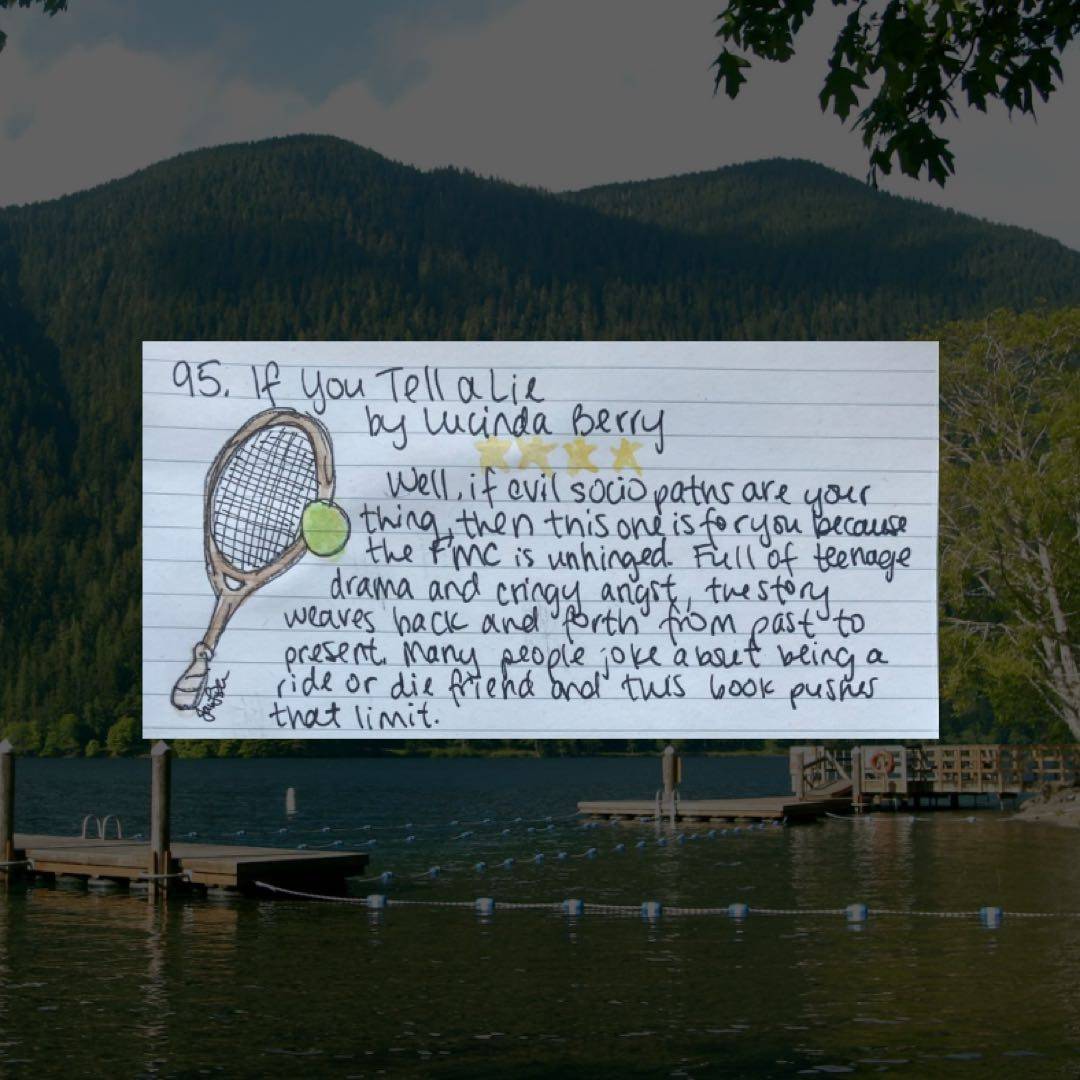 95. If You Tell a Lie
by Lucinda Berry
Well, if evil sociopaths are your
thing, then this one is for you because
the FMC is unhinged. Full of teenage
drama and cringy angst, the story
weaves back and forth from past to
present. Many people joke about being a
ride or die friend and this book pushes
that limit.